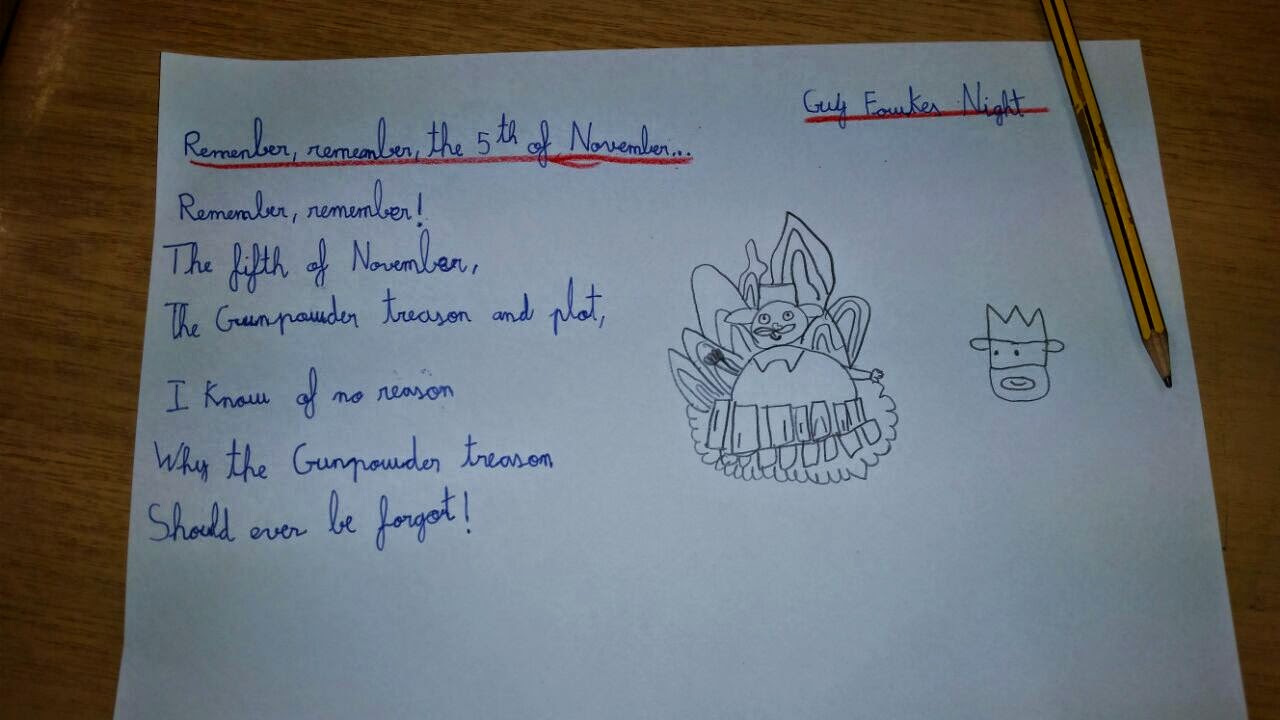 Guy Fawkes Night
Remember, remember, the 5th of November...
Remember, remember!
The fifth of November,
The Gunpowder treason and plot,
I Know of no reason
Why the Gunpowder treason
Should ever be forgot!